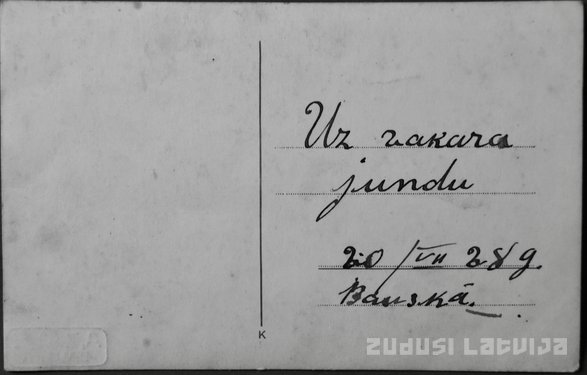 Uz vakara
jundu
20/VII 28 g.
Bauskā.
K
ZUDUSI LATVIJA